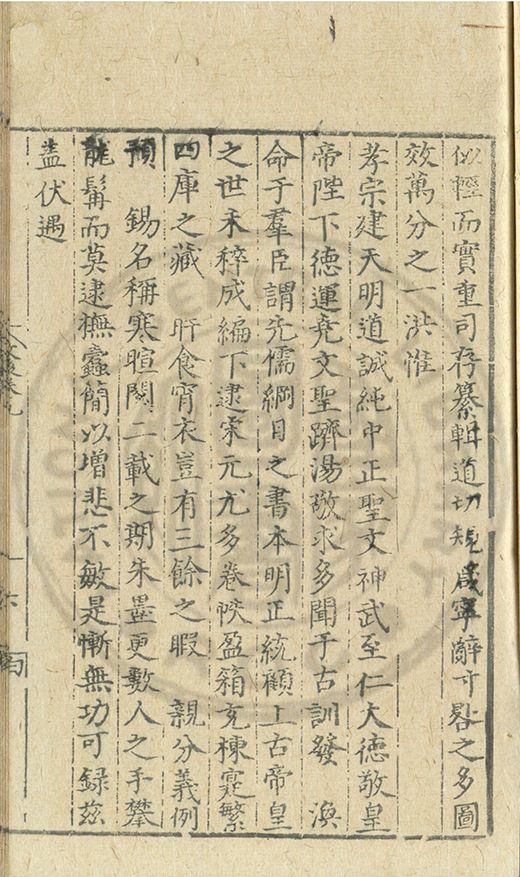 似輕而實重司存纂輯道切規箴寧辭寸晷之多圖
效萬分之一洪惟
孝宗建天明道誠純中正聖文神武至仁大德敬皇
帝陛下德運堯文聖躋湯敬求多聞于古訓發 渙
命于羣臣謂先儒綱目之書本明正統顧上古帝皇
之世未稡成編下逮宋元尤多卷帙盈箱充棟寔繁
四庫之藏 旰食宵衣豈有三餘之暇 親分義例
預 錫名稱寒暄閱二載之期朱墨更數人之手攀
龍髯而莫逮撫蠧簡以增悲不敏是慚無功可録兹
盖伏遇